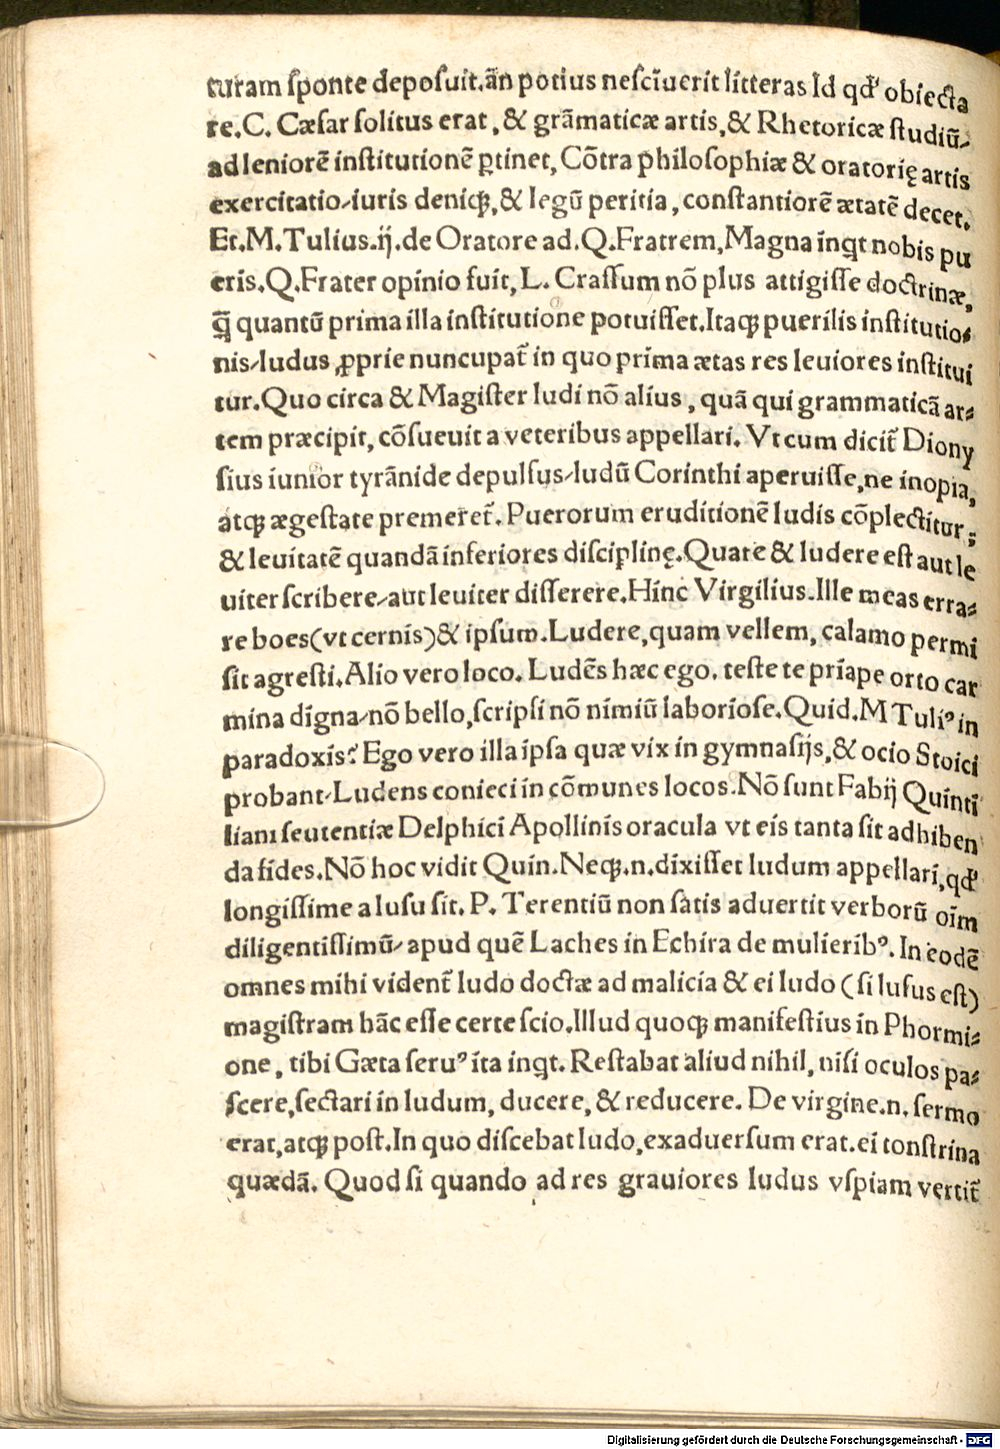 turam ſponte depoſuit.ān potius neſcĩuerit litteras Id qđ obiecta
re.C. Cæſar ſolitus erat, & grãmaticæ artis,& Rhetoricæ ſtudiũ-
ad leniorẽ inſtitutionẽ ꝑtinet, Cõtra philoſophiæ & oratorię artis
exercitatio-iuris deniqꝫ,& legũ peritia, conſtantiorẽ ætatẽ decet.
Et.M.Tulius.ij.de Oratore ad.Q.Fratrem,Magna inqt nobis pu
eris.Q.Frater opinio fuit, L. Craſſum nõ plus attigiſſe doctrinæ,
q̃ quantũ prima illa inſtitutione potuiſſet.Itaqꝫ puerilis inſtitutio⸗
nis-ludus ꝓprie nuncupat̃ in quo prima ætas res leuiores inſtitui
tur.Quo circa & Magiſter ludi nõ alius, quã qui grammaticã ar⸗
tem præcipit, cõſueuit a veteribus appellari. Vt cum dicit̃ Diony
ſius iunior tyrãnide depulſus-ludũ Corinthi aperuiſſe,ne inopia,
atqꝫ ægeſtate premeret̃. Puerorum eruditionẽ ludis cõplectitur;
& leuitatẽ quandã inferiores diſciplinę.Quare & ludere eſt aut le
uiter ſcribere-aut leuiter diſſerere.Hinc Virgilius.Ille meas erra⸗
re boes(vt cernis)& ipſum.Ludere,quam vellem, calamo permi
ſit agreſti.Alio vero loco. Ludẽs hæc ego. teſte te priape orto car
mina digna-nõ bello,ſcripſi nõ nimiũ laborioſe.Quid.M Tuliꝰ in
paradoxis? Ego vero illa ipſa quæ vix in gymnaſijs,& ocio Stoici
probant-Ludens conieci in cõmunes locos.Nõ ſunt Fabij Quinti
liani ſeutentiæ Delphici Apollinis oracula vt eis tanta ſit adhiben
da fides.Nõ hoc vidit Quin.Neqꝫ.n.dixiſſet ludum appellari,qđ
longiſſime a luſu ſit. P. Terentiũ non ſatis aduertit verborũ oĩm
diligentiſſimũ-apud quẽ Laches in Echira de mulieribꝰ. In eodẽ
omnes mihi vident̃ ludo doctæ ad malicia & ei ludo (ſi luſus eſt)
magiſtram hãc eſſe certe ſcio.Illud quoqꝫ manifeſtius in Phormi⸗
one, tibi Gæta ſeruꝰ ita inqt. Reſtabat aliud nihil, niſi oculos pa⸗
ſcere,ſectari in ludum, ducere, & reducere. De virgine.n. ſermo
erat,atqꝫ poſt.In quo diſcebat ludo,exaduerſum erat.ei tonſtrina
quædã. Quod ſi quando ad res grauiores ludus vſpiam vertit̃
Digitalisierung gefördert durch die Deutsche Forschungsgemeinschaft - DFG